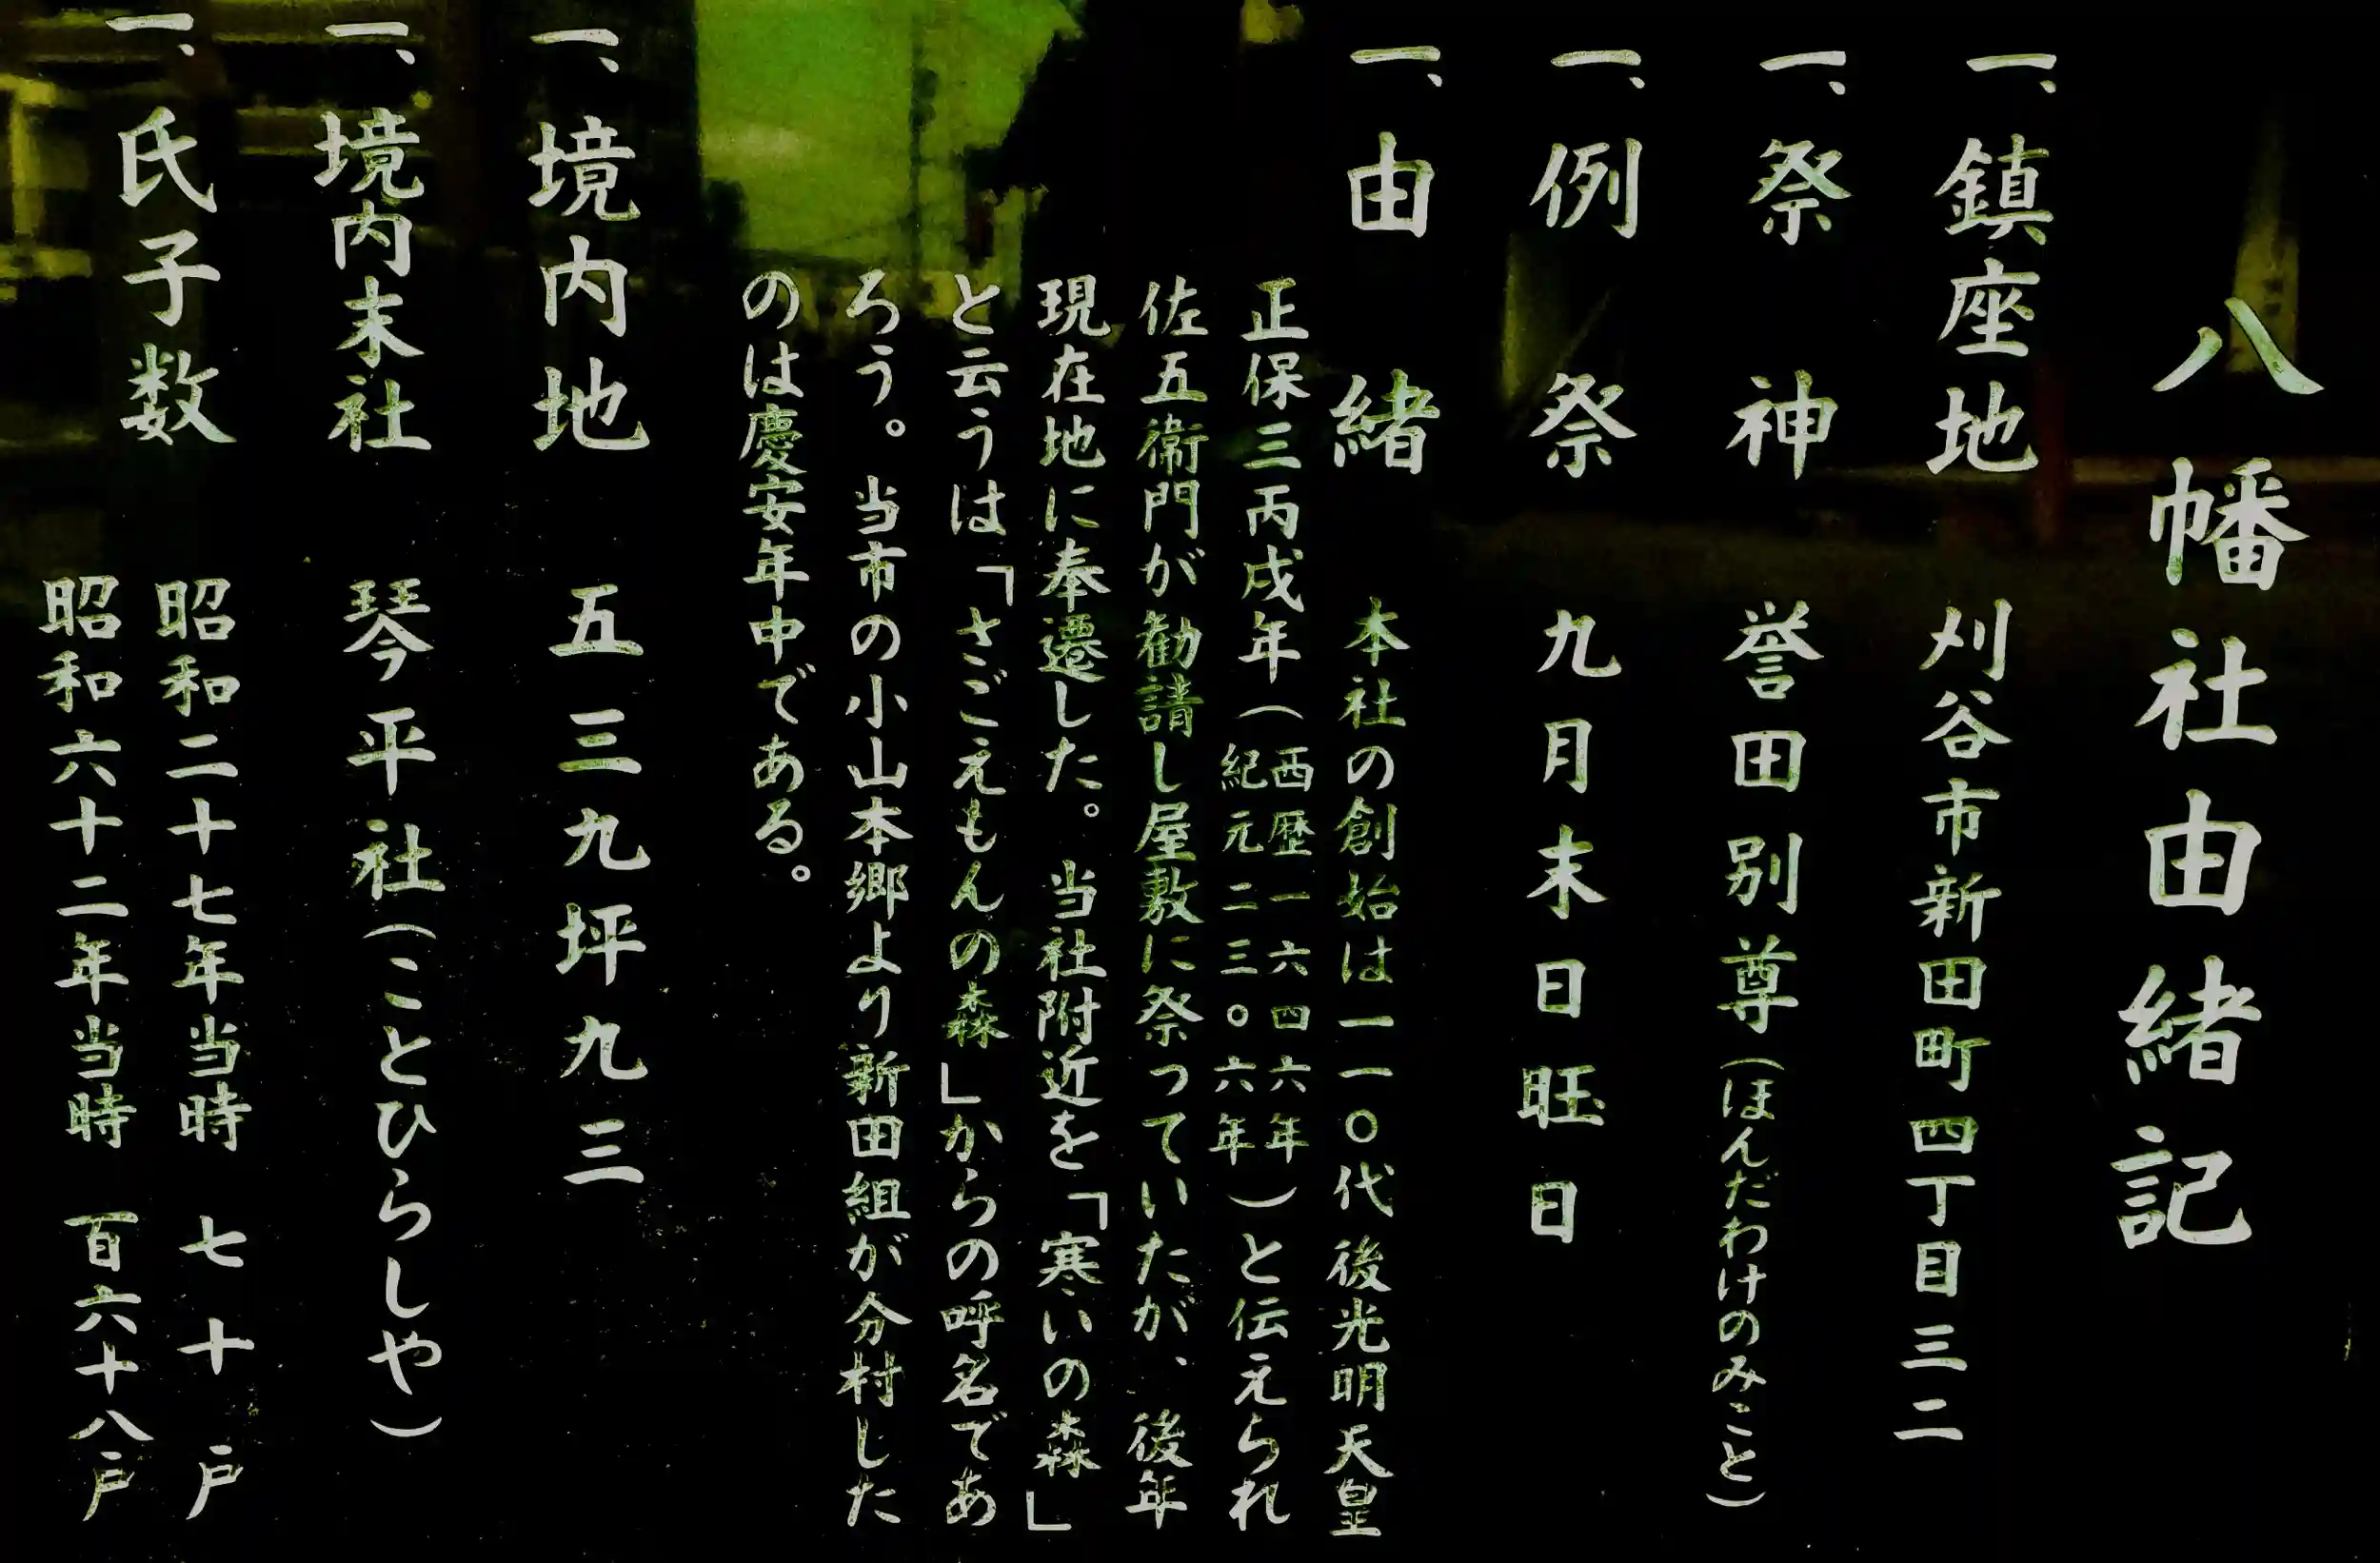 八幡社由緒記
一、鎮座地　刈谷市新田町四丁目三二
一、祭神　誉田別尊（ほんだわけのみこと）
一、例祭　九月末日旺日
一、由緒　本社の創始は一一〇代後光明天皇
正保三丙戌年（西歴一六四六年 紀元二三〇六年）と伝えられ
佐五衛門が勧請し屋敷に祭っていたが、後年
現在地に奉遷した。当社附近を「寒いの森」
と云うは「さごえもんの森」からの呼名であ
ろう。当市の小山本郷より新田組が分村した
のは慶安年中である。
一、境内地　五三九坪九三
一、境内末社　琴平社（ことひらしや）
一、氏子数　昭和二十七年当時　七十戸
昭和六十二年当時　百六十八戸